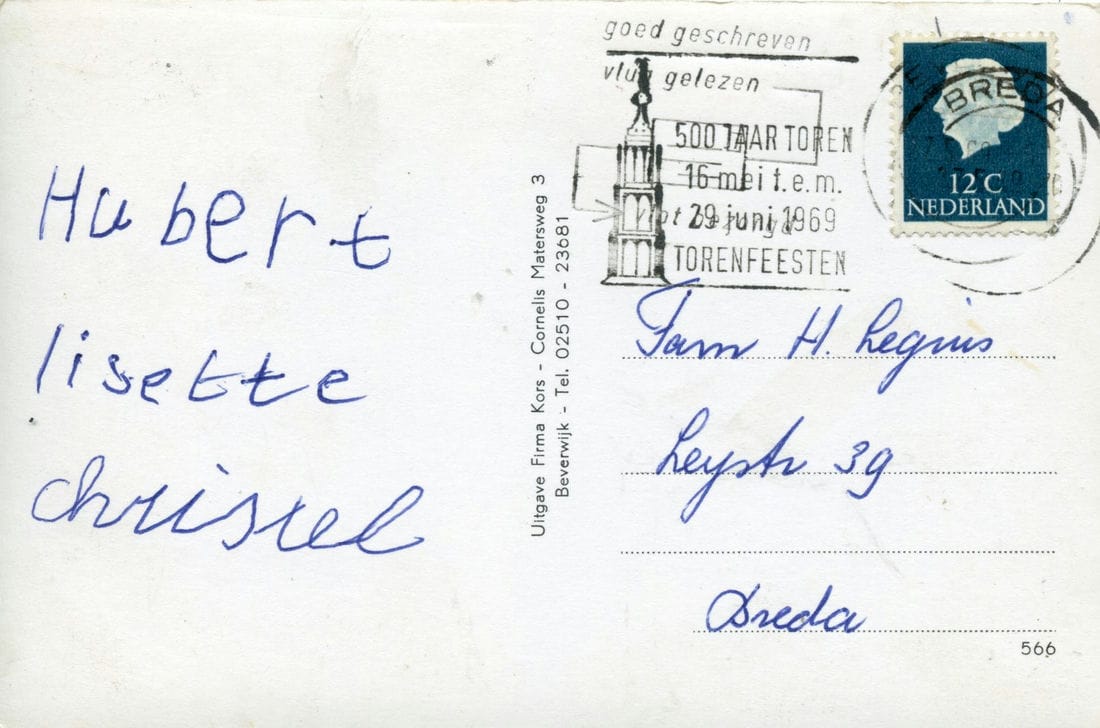 goed geschreven
vlug gelezen
500 JAAR TOREN
16 mei t.e.m.
29 juni 1969
TORENFEESTEN
BREDA
12 C
NEDERLAND
Hubert
lisette
christel
Uitgave Firma Kors - Cornelis Matersweg 3
Beverwijk - Tel. 02510 - 23681
Fam H. Legius
Leystr 39
Breda
566